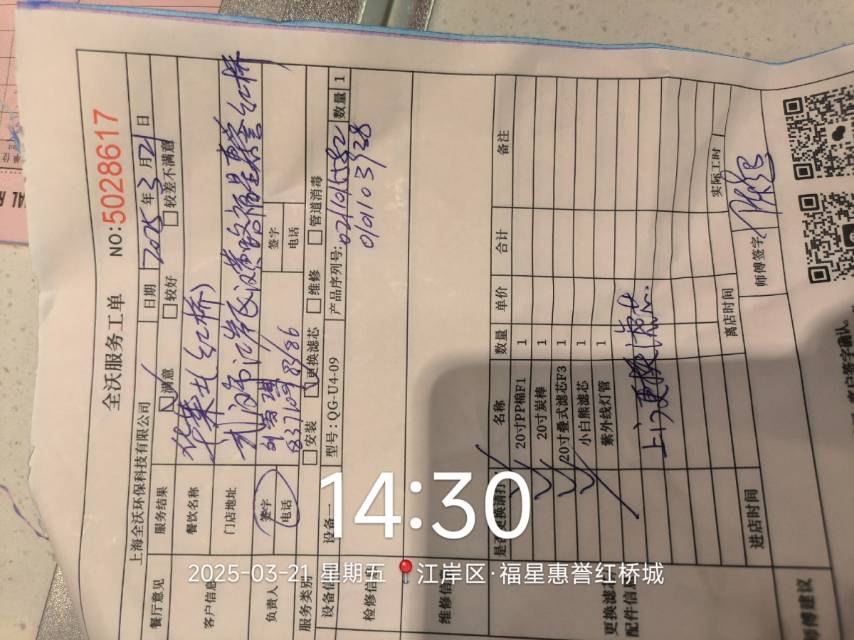 全沃服务工单
NO:5028617
上海全沃环保科技有限公司
日期 2025年3月21日
餐厅意见 服务结果 满意 较好 较差不满意
客户信息 餐饮名称 华莱士(红桥)
门店地址 福星惠誉红桥
负责人 签字 签字
电话 83210983/86 电话
服务类别 安装 更换滤芯 维修 管道消毒
设备信 设备一 型号:QG-U4-09 产品序列号: 数量 1
检修信息
维修信息
名称 数量 单价 合计 备注
20寸PP棉F1 1
20寸炭棒 1
20寸叠式滤芯F3 1
小白熊滤芯 1
紫外线灯管 1
更换滤
配件信息
上门更换滤芯.
进店时间 离店时间 实际工时
师傅建议 师傅签字
客户签字确认
14:30
2025-03-21 星期五 江岸区·福星惠誉红桥城